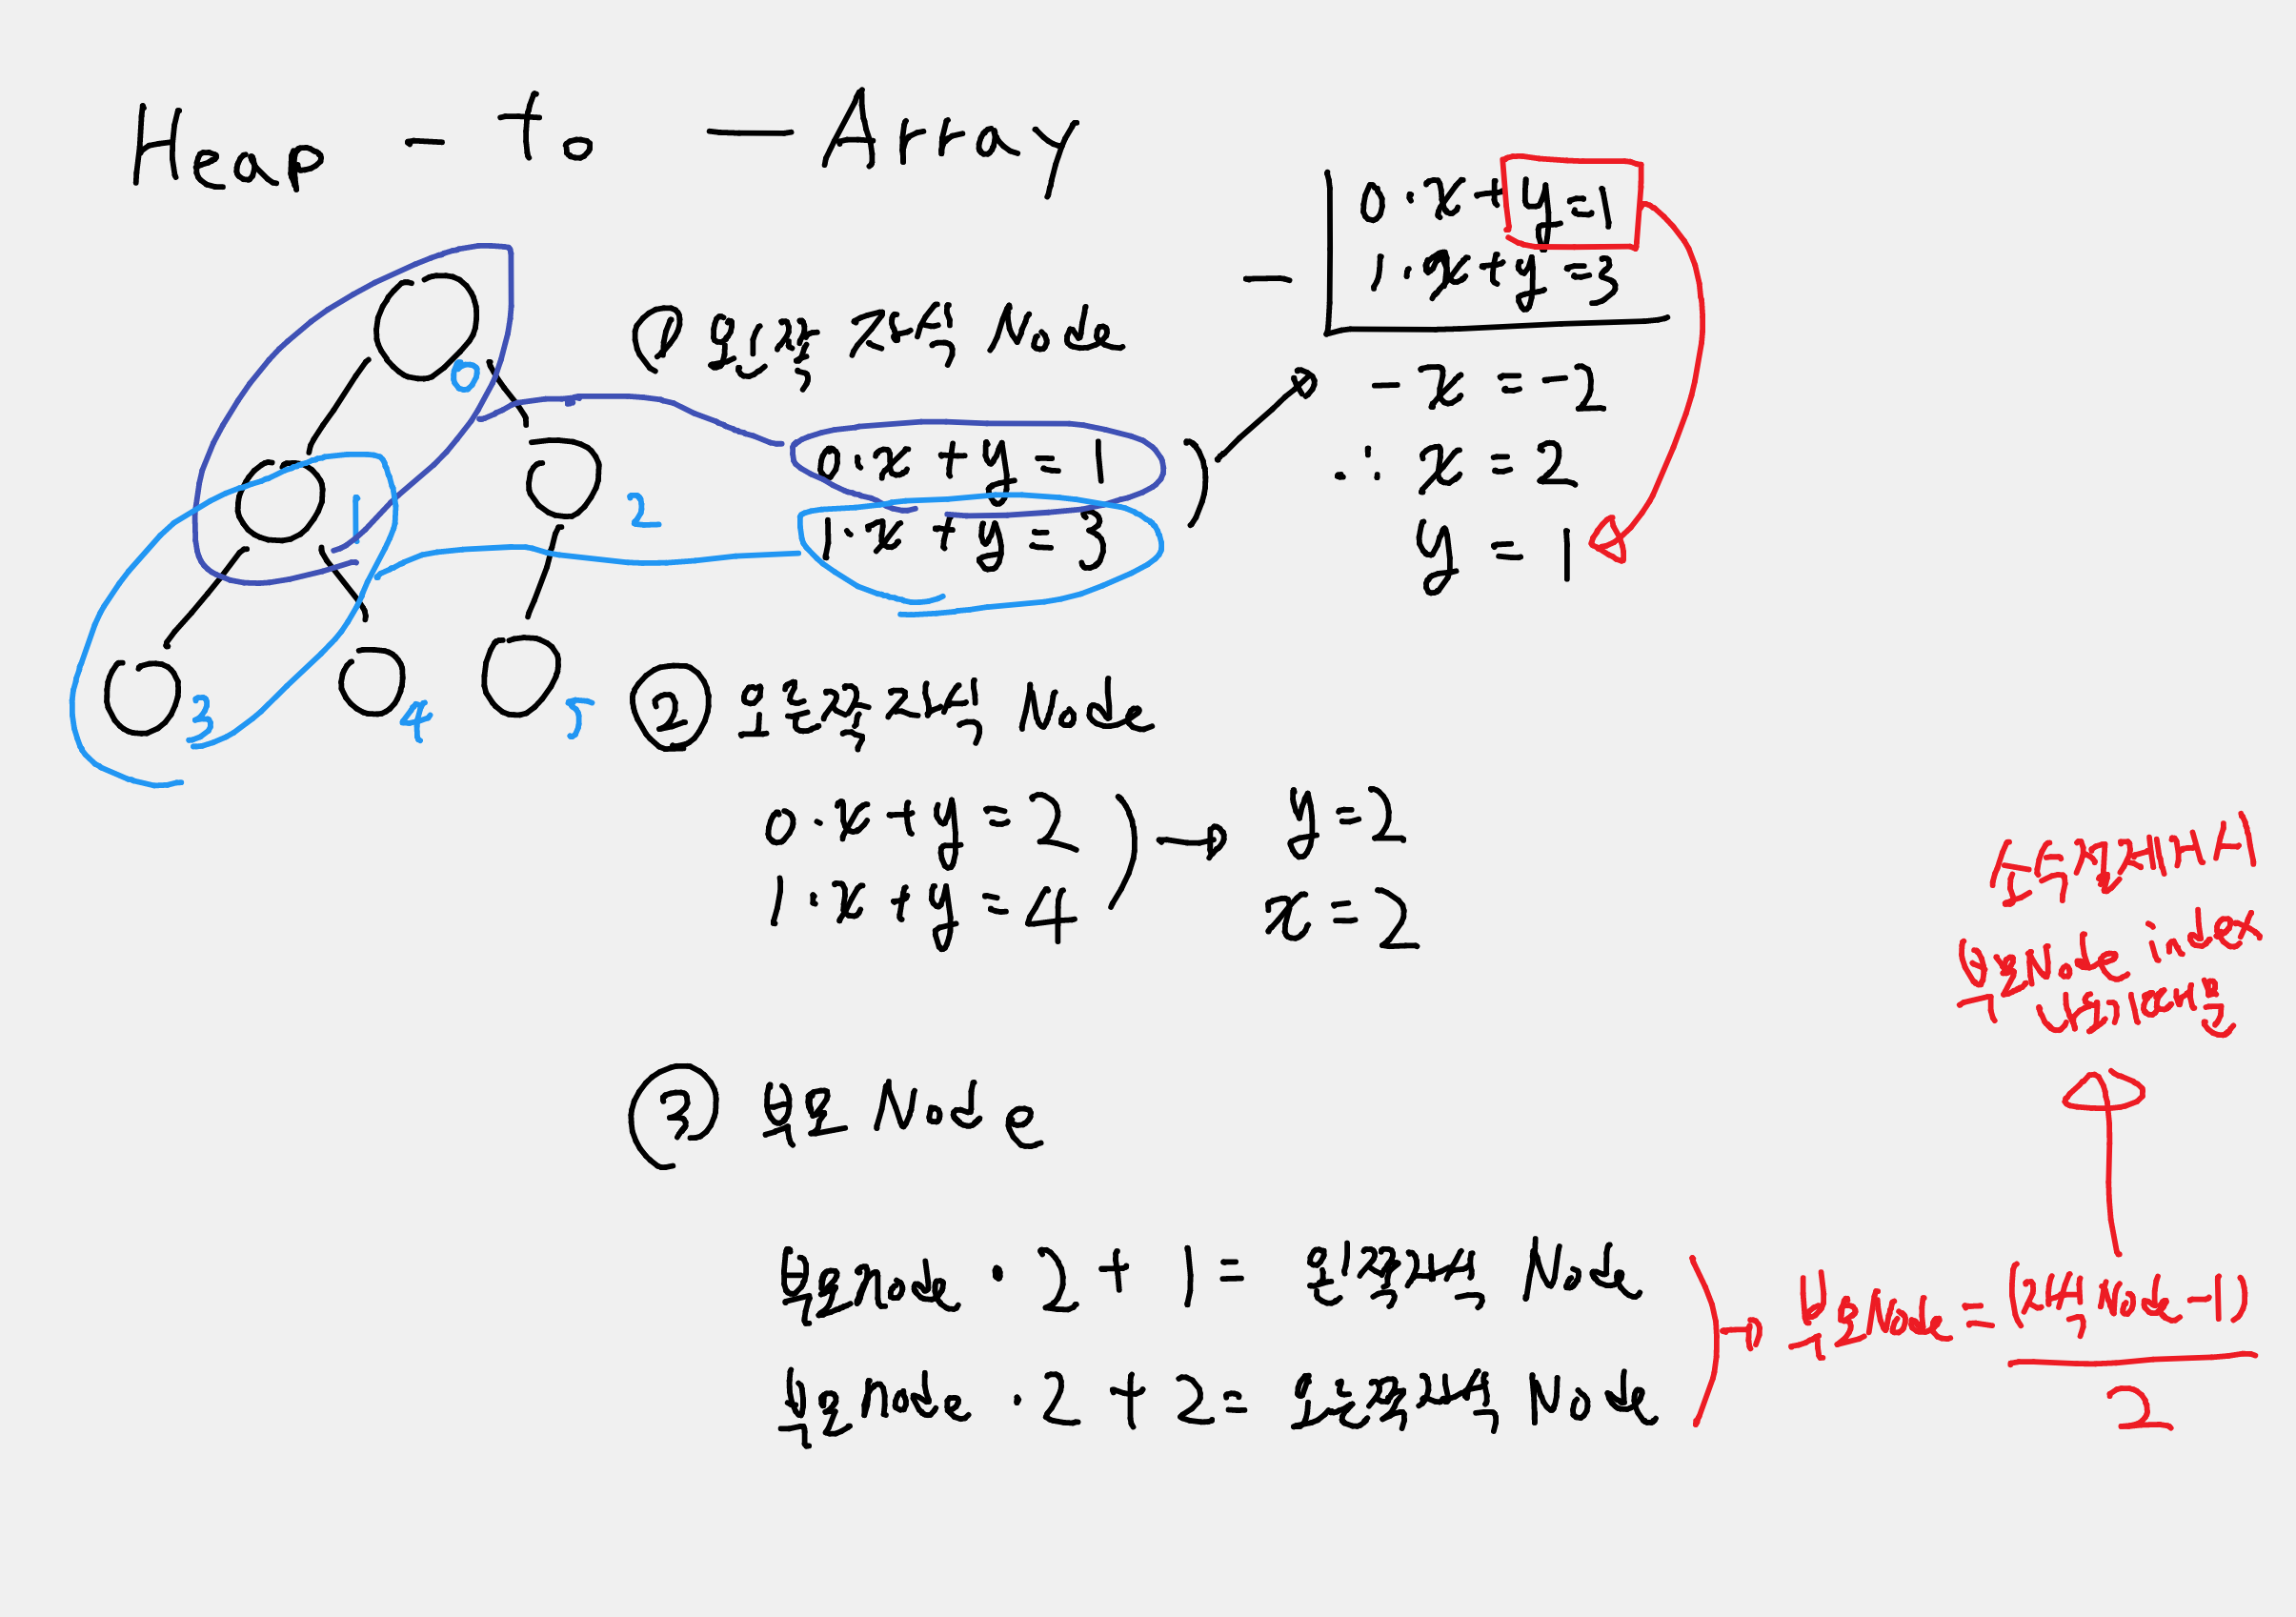 Heap - to - Array
0
1
2
3
4
5
① 왼쪽 자식 Node
0·x + y = 1
1·x + y = 3
0·x + y = 1
- 1·x + y = 3
-x = -2
∴ x = 2
y = 1
② 오른쪽 자식 Node
0·x + y = 2
1·x + y = 4
y = 2
x = 2
③ 부모 Node
부모node · 2 + 1 = 왼쪽자식 Node
부모node · 2 + 2 = 오른쪽자식 Node
부모Node = (자식Node - 1)
2
부모Node index